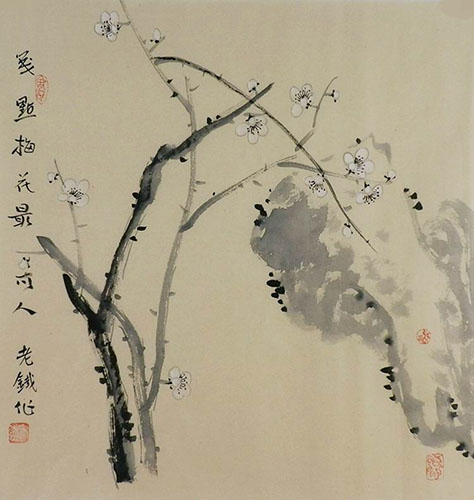 幾點梅花最可人 老鐵作